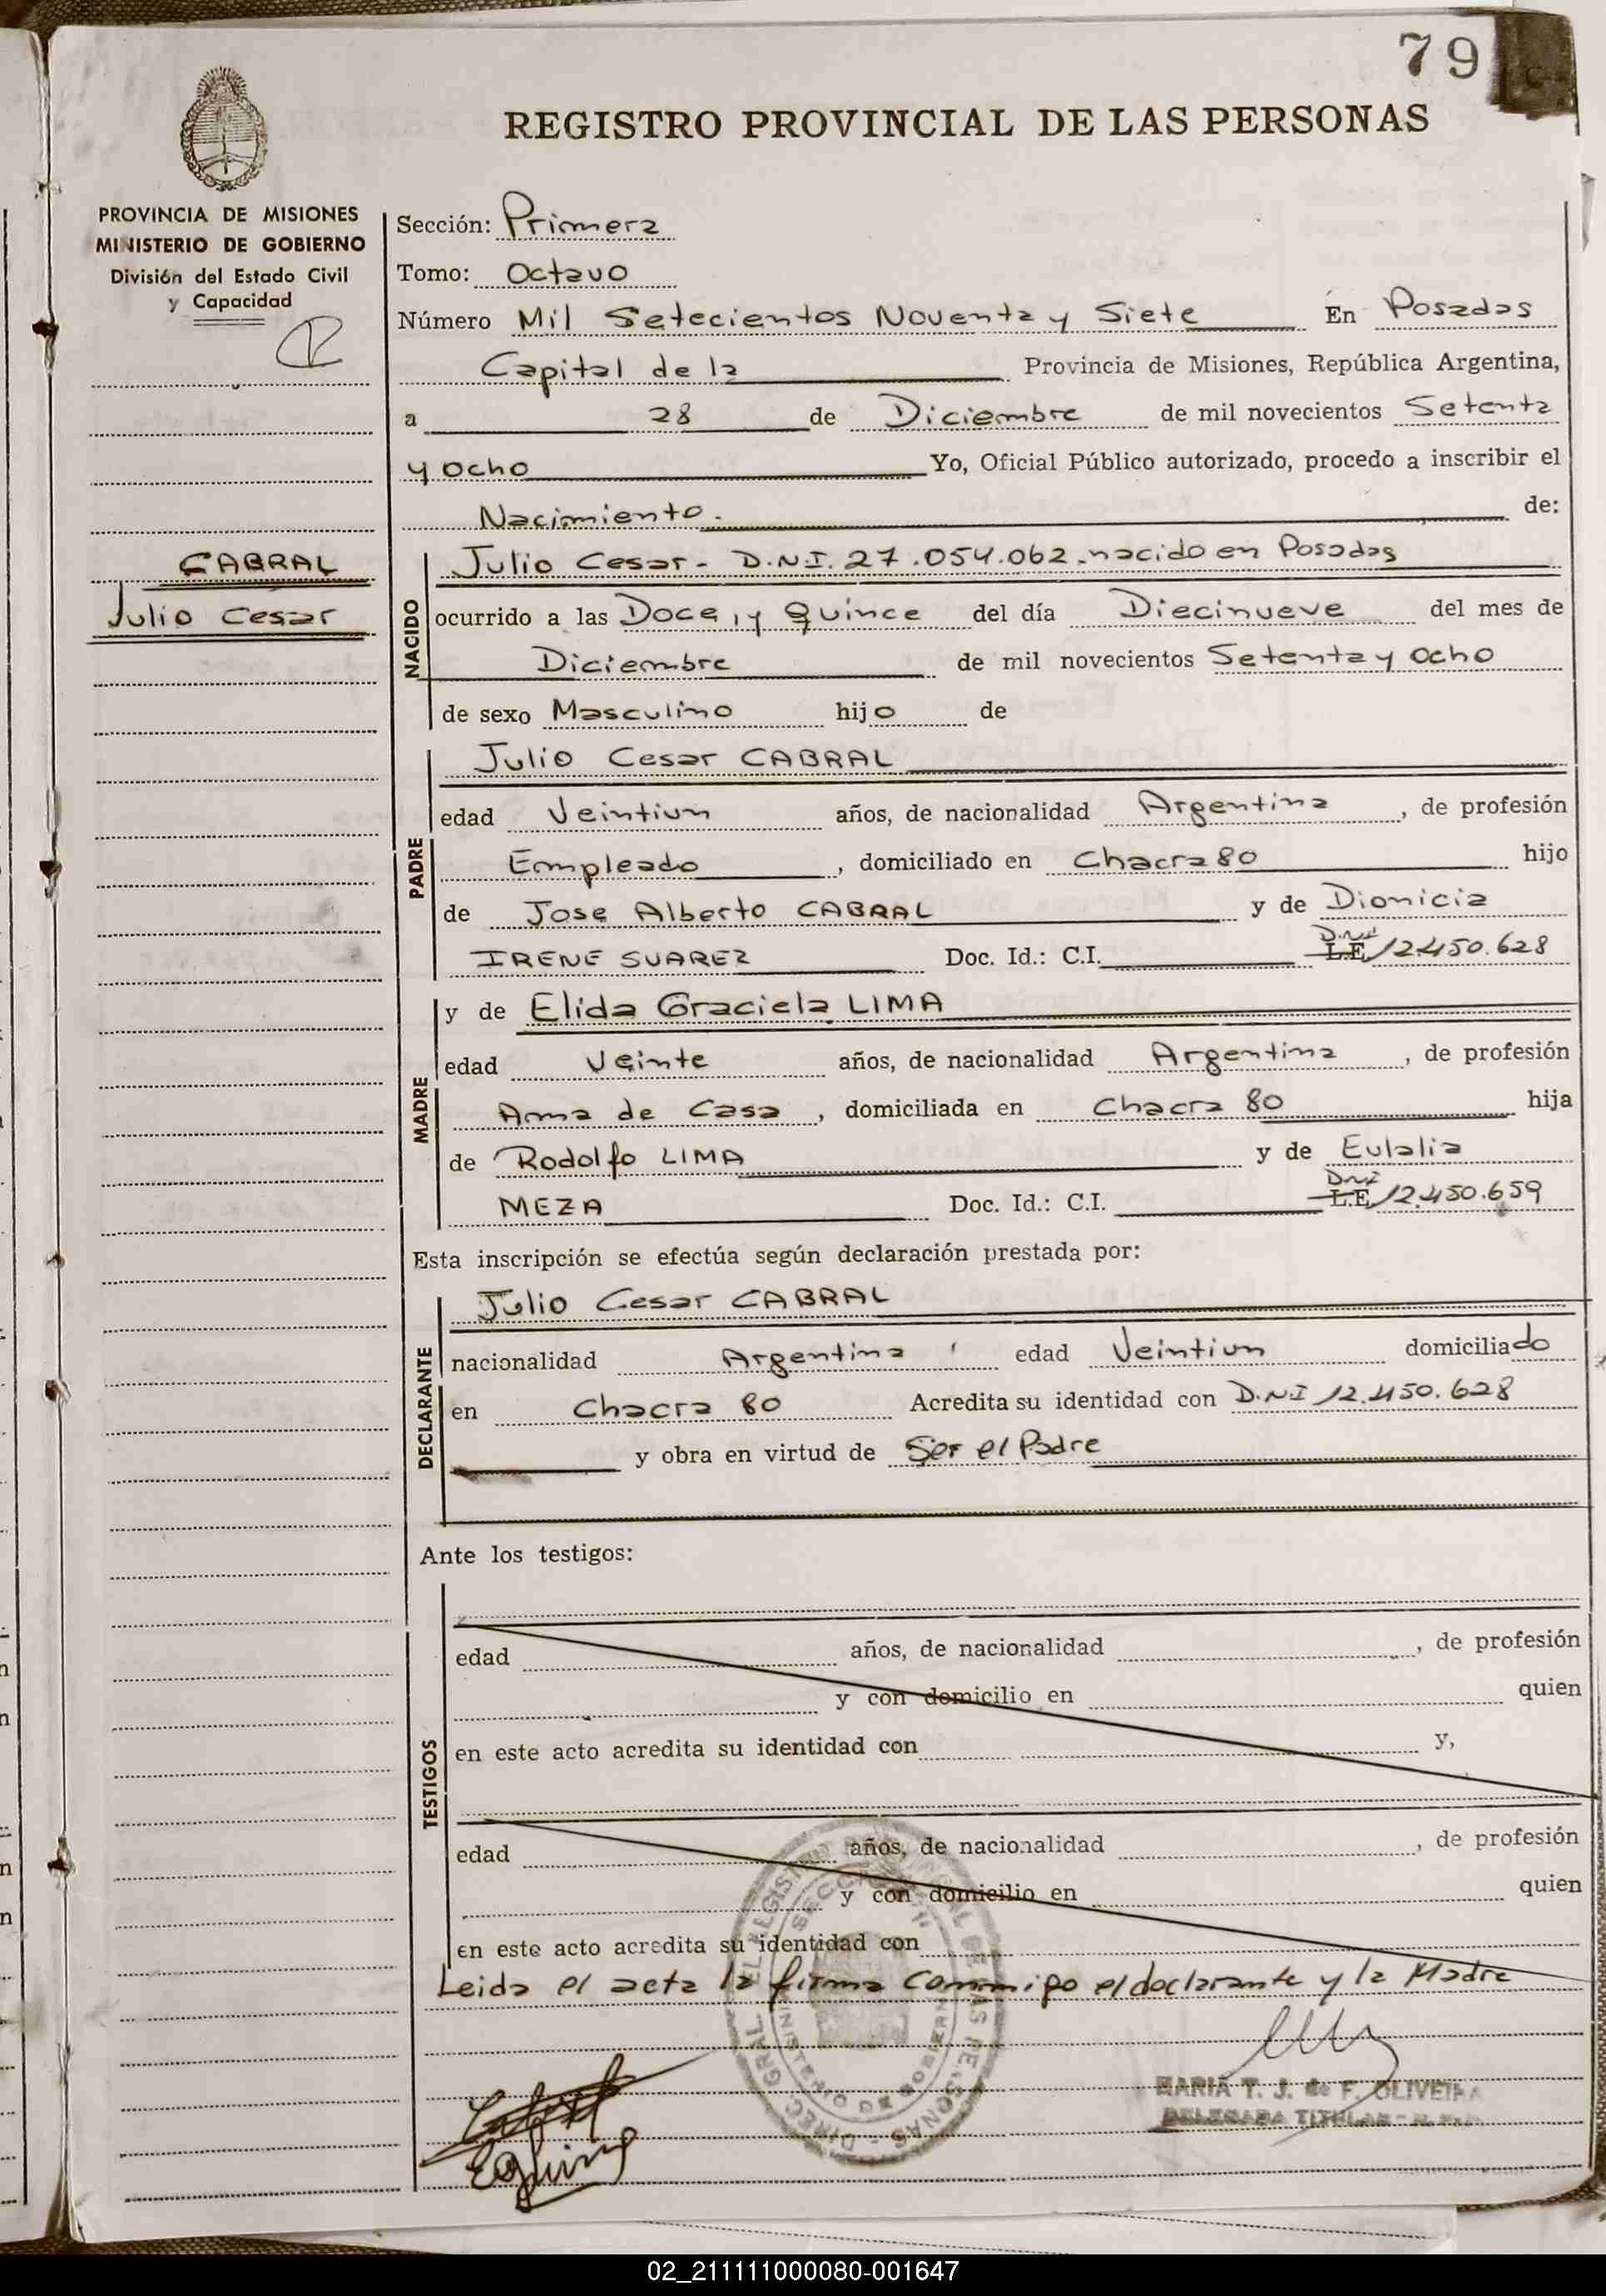 79
REGISTRO PROVINCIAL DE LAS PERSONAS
PROVINCIA DE MISIONES
MINISTERIO DE GOBIERNO
División del Estado Civil
y Capacidad
CABRAL
Julio Cesar
Sección: Primera
Tomo: Octavo
Número Mil Setecientos Noventa y Siete En Posadas
Capital de la Provincia de Misiones, República Argentina,
a 28 de Diciembre de mil novecientos Setenta
y Ocho Yo, Oficial Público autorizado, procedo a inscribir el
Nacimiento. de:
NACIDO
Julio Cesar - D.N.I. 27.054.062. nacido en Posadas
ocurrido a las Doce, y Quince del día Diecinueve del mes de
Diciembre de mil novecientos Setenta y Ocho
de sexo Masculino hijo de
PADRE
Julio Cesar CABRAL
edad Veintiun años, de nacionalidad Argentina, de profesión
Empleado, domiciliado en Chacra 80 hijo
de Jose Alberto CABRAL y de Dionicia
IRENE SUAREZ Doc. Id.: C.I. L.E. D.N.I 12.450.628
MADRE
y de Elida Graciela LIMA
edad Veinte años, de nacionalidad Argentina, de profesión
Ama de Casa, domiciliada en Chacra 80 hija
de Rodolfo LIMA y de Eulalia
MEZA Doc. Id.: C.I. L.E. DNI 12.450.659
Esta inscripción se efectúa según declaración prestada por:
DECLARANTE
Julio Cesar CABRAL
nacionalidad Argentina edad Veintiun domiciliado
en Chacra 80 Acredita su identidad con D.N.I 12.450.628
y obra en virtud de Ser el Padre
Ante los testigos:
TESTIGOS
edad años, de nacionalidad , de profesión
y con domicilio en quien
en este acto acredita su identidad con y,
edad años, de nacionalidad , de profesión
y con domicilio en quien
en este acto acredita su identidad con
Leida el acta la firma conmigo el declarante y la Madre
MARIA T. J. de F. OLIVEIRA
DELEGADA TITULAR
02_211111000080-001647